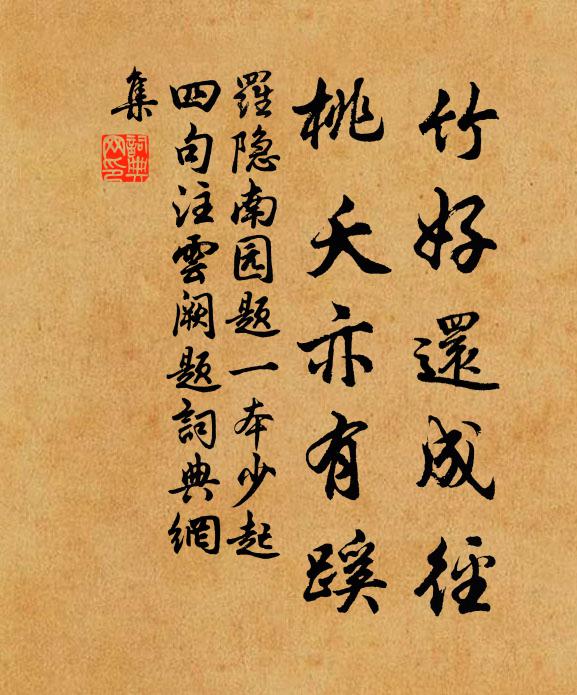 竹好還成徑
桃夭亦有蹊
羅隐南园题一本少起
四句注雲阙题詞典網
集
詞典網印